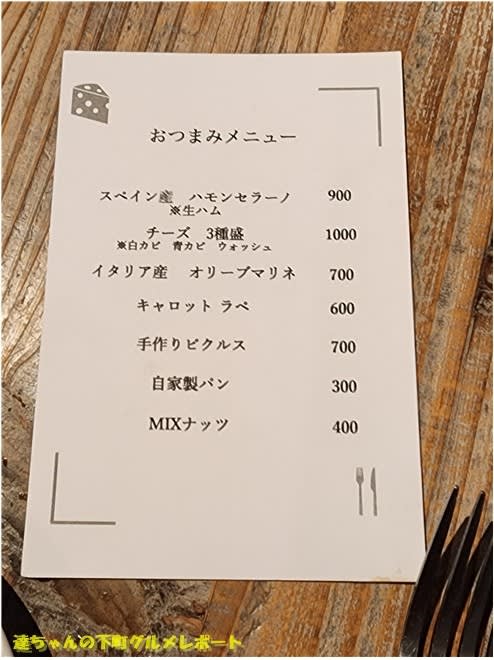 おつまみメニュー
スペイン産 ハモンセラーノ 900
※生ハム
チーズ 3種盛 1000
※白カビ 青カビ ウォッシュ
イタリア産 オリーブマリネ 700
キャロット ラペ 600
手作りピクルス 700
自家製パン 300
MIXナッツ 400
達ちゃんの下町グルメレポート